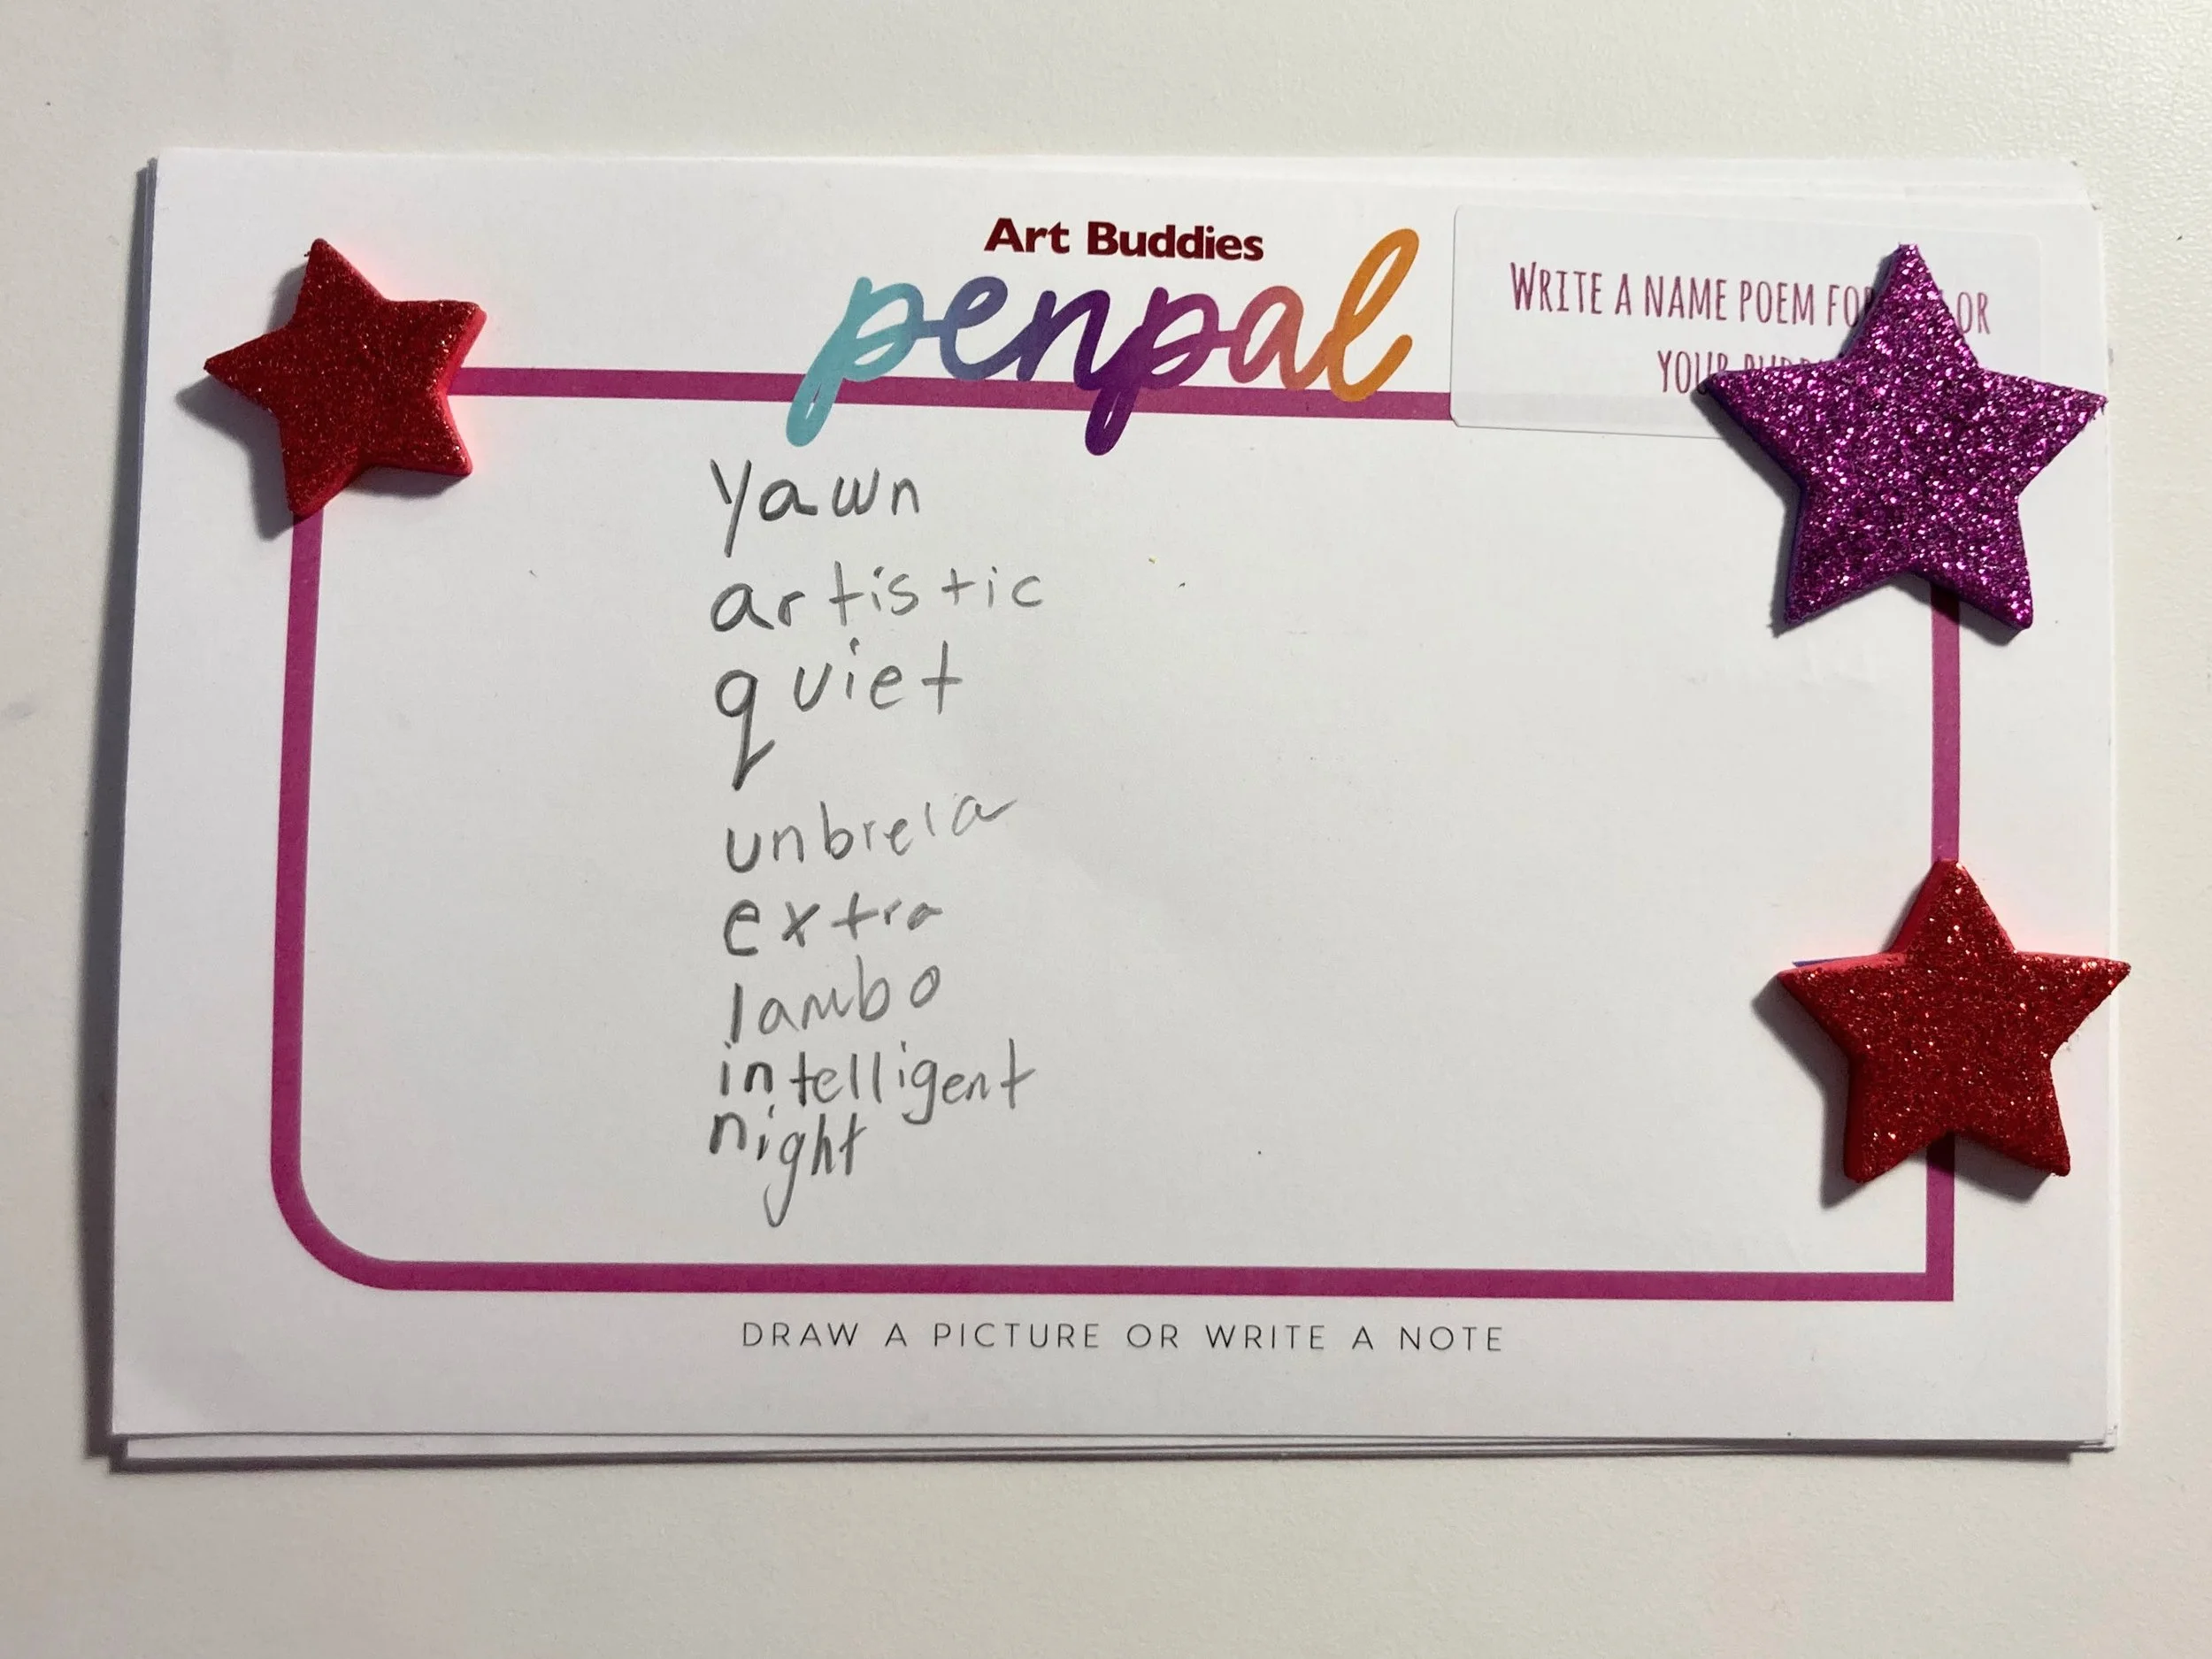 Art Buddies
penpal
WRITE A NAME POEM OR
YOUR
yawn
artistic
quiet
unbrela
extra
lambo
intelligent
night
DRAW A PICTURE OR WRITE A NOTE